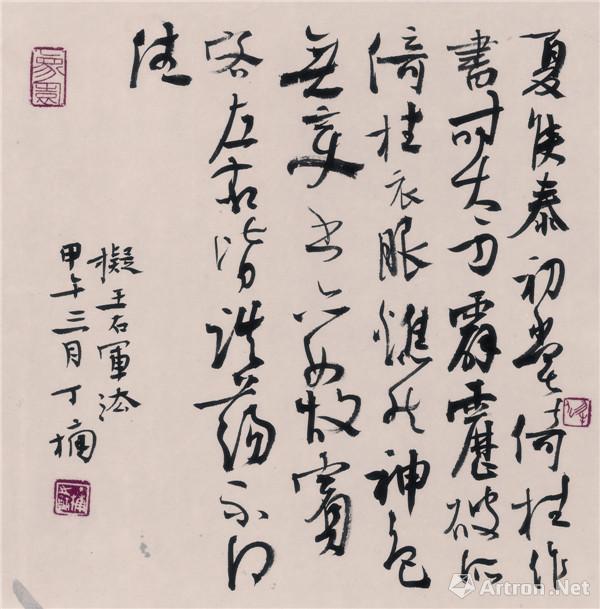 夏侯泰初嘗倚柱作
書时大雨霹靂破所
倚柱衣服燋然神色
無变书亦如故賓
客左右皆跌蕩不得
住
擬王右軍法
甲午三月丁楠
Artron.Net